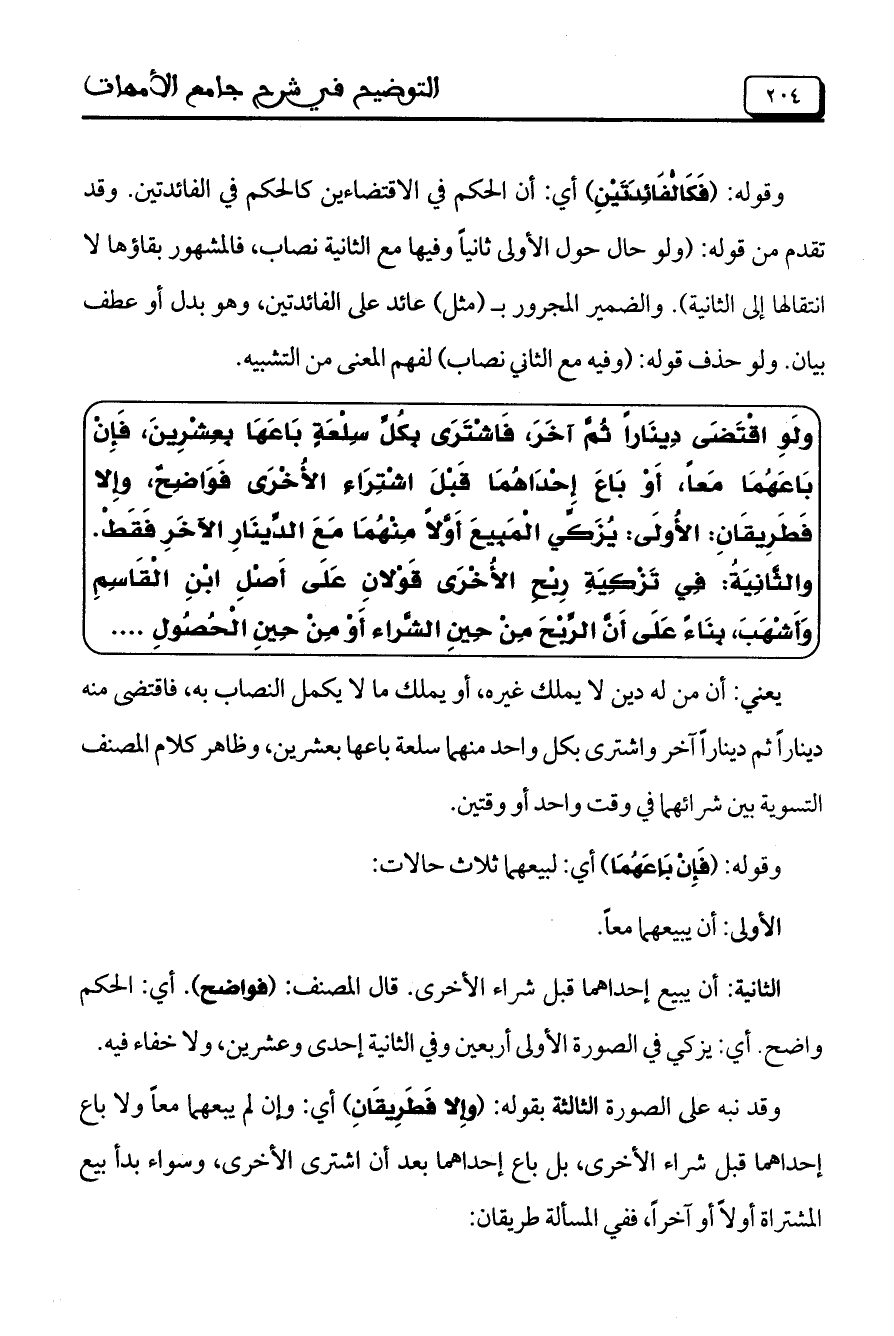 ٢٠٤
التوضيح في شرح جامع الأمهات
وقوله: (فَكَالْفَائِدَتَيْنِ) أي: أن الحكم في الاقتضاءين كالحكم في الفائدتين. وقد
تقدم من قوله: (ولو حال حول الأولى ثانياً وفيها مع الثانية نصاب، فالمشهور بقاؤها لا
انتقالها إلى الثانية). والضمير المجرور بـ (مثل) عائد على الفائدتين، وهو بدل أو عطف
بيان. ولو حذف قوله: (وفيه مع الثاني نصاب) لفهم المعنى من التشبيه.
ولَوِ اقْتَضَى دِينَاراً ثُمَّ آخَرَ، فَاشْتَرَى بِكُلٍّ سِلْعَةٍ بَاعَهَا بِعِشْرِينَ، فَإِنْ
بَاعَهُمَا مَعاً، أَوْ بَاعَ إِحْدَاهُمَا قَبْلَ اشْتِرَاءِ الأُخْرَى فَوَاضِحٌ، وإِلا
فَطَرِيقَانِ: الأُولَى: يُزَكِّي الْمَبِيعَ أَوَّلاً مِنْهُمَا مَعَ الدِّينَارِ الآخَرِ فَقَطْ.
والثَّانِيَةُ: فِي تَزْكِيَةِ رِبْحِ الأُخْرَى قَوْلانِ عَلَى أَصْلِ ابْنِ الْقَاسِمِ
وَأَشْهَبَ، بِنَاءً عَلَى أَنَّ الرِّبْحَ مِنْ حِينِ الشِّرَاء أَوْ مِنْ حِينِ الْحُصُولِ ....
يعني: أن من له دين لا يملك غيره، أو يملك ما لا يكمل النصاب به، فاقتضى منه
ديناراً ثم ديناراً آخر واشترى بكل واحد منهما سلعة باعها بعشرين، وظاهر كلام المصنف
التسوية بين شرائهما في وقت واحد أو وقتين.
وقوله: (فَإِنْ بَاعَهُمَا) أي: لبيعهما ثلاث حالات:
الأولى: أن يبيعهما معاً.
الثانية: أن يبيع إحداهما قبل شراء الأخرى. قال المصنف: (فواضح). أي: الحكم
واضح. أي: يزكي في الصورة الأولى أربعين وفي الثانية إحدى وعشرين، ولا خفاء فيه.
وقد نبه على الصورة الثالثة بقوله: (وإِلا فَطَرِيقَانِ) أي: وإن لم يبعهما معاً ولا باع
إحداهما قبل شراء الأخرى، بل باع إحداهما بعد أن اشترى الأخرى، وسواء بدأ بيع
المشتراة أولاً أو آخراً، ففي المسألة طريقان: